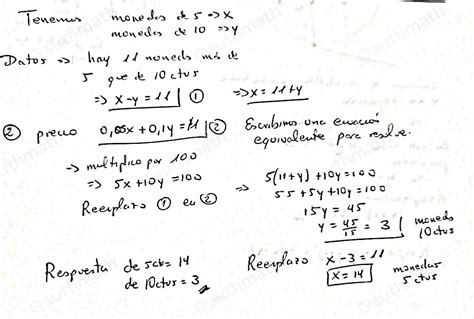 Tenemos monedas de 5 => x
monedas de 10 => y
Datos => hay 11 moneds más de
5 que de 10 ctvs
=> x-y=11 ① => x = 11+y
② precio 0,05x+0,1y=1 ② Escribimos una ecuación
equivalente para resolver.
→ multiplico por 100
=> 5x+10y=100 => 5(11+y)+10y=100
55+5y+10y=100
Reemplazo ① en ② 15y = 45
y = 45/15 = 3 moneds
10ctvs
Respuesta de 5ctv = 14 Reemplazo x-3=11
de 10ctvs = 3 x = 14 monedas
5 ctvs
Gauthmath